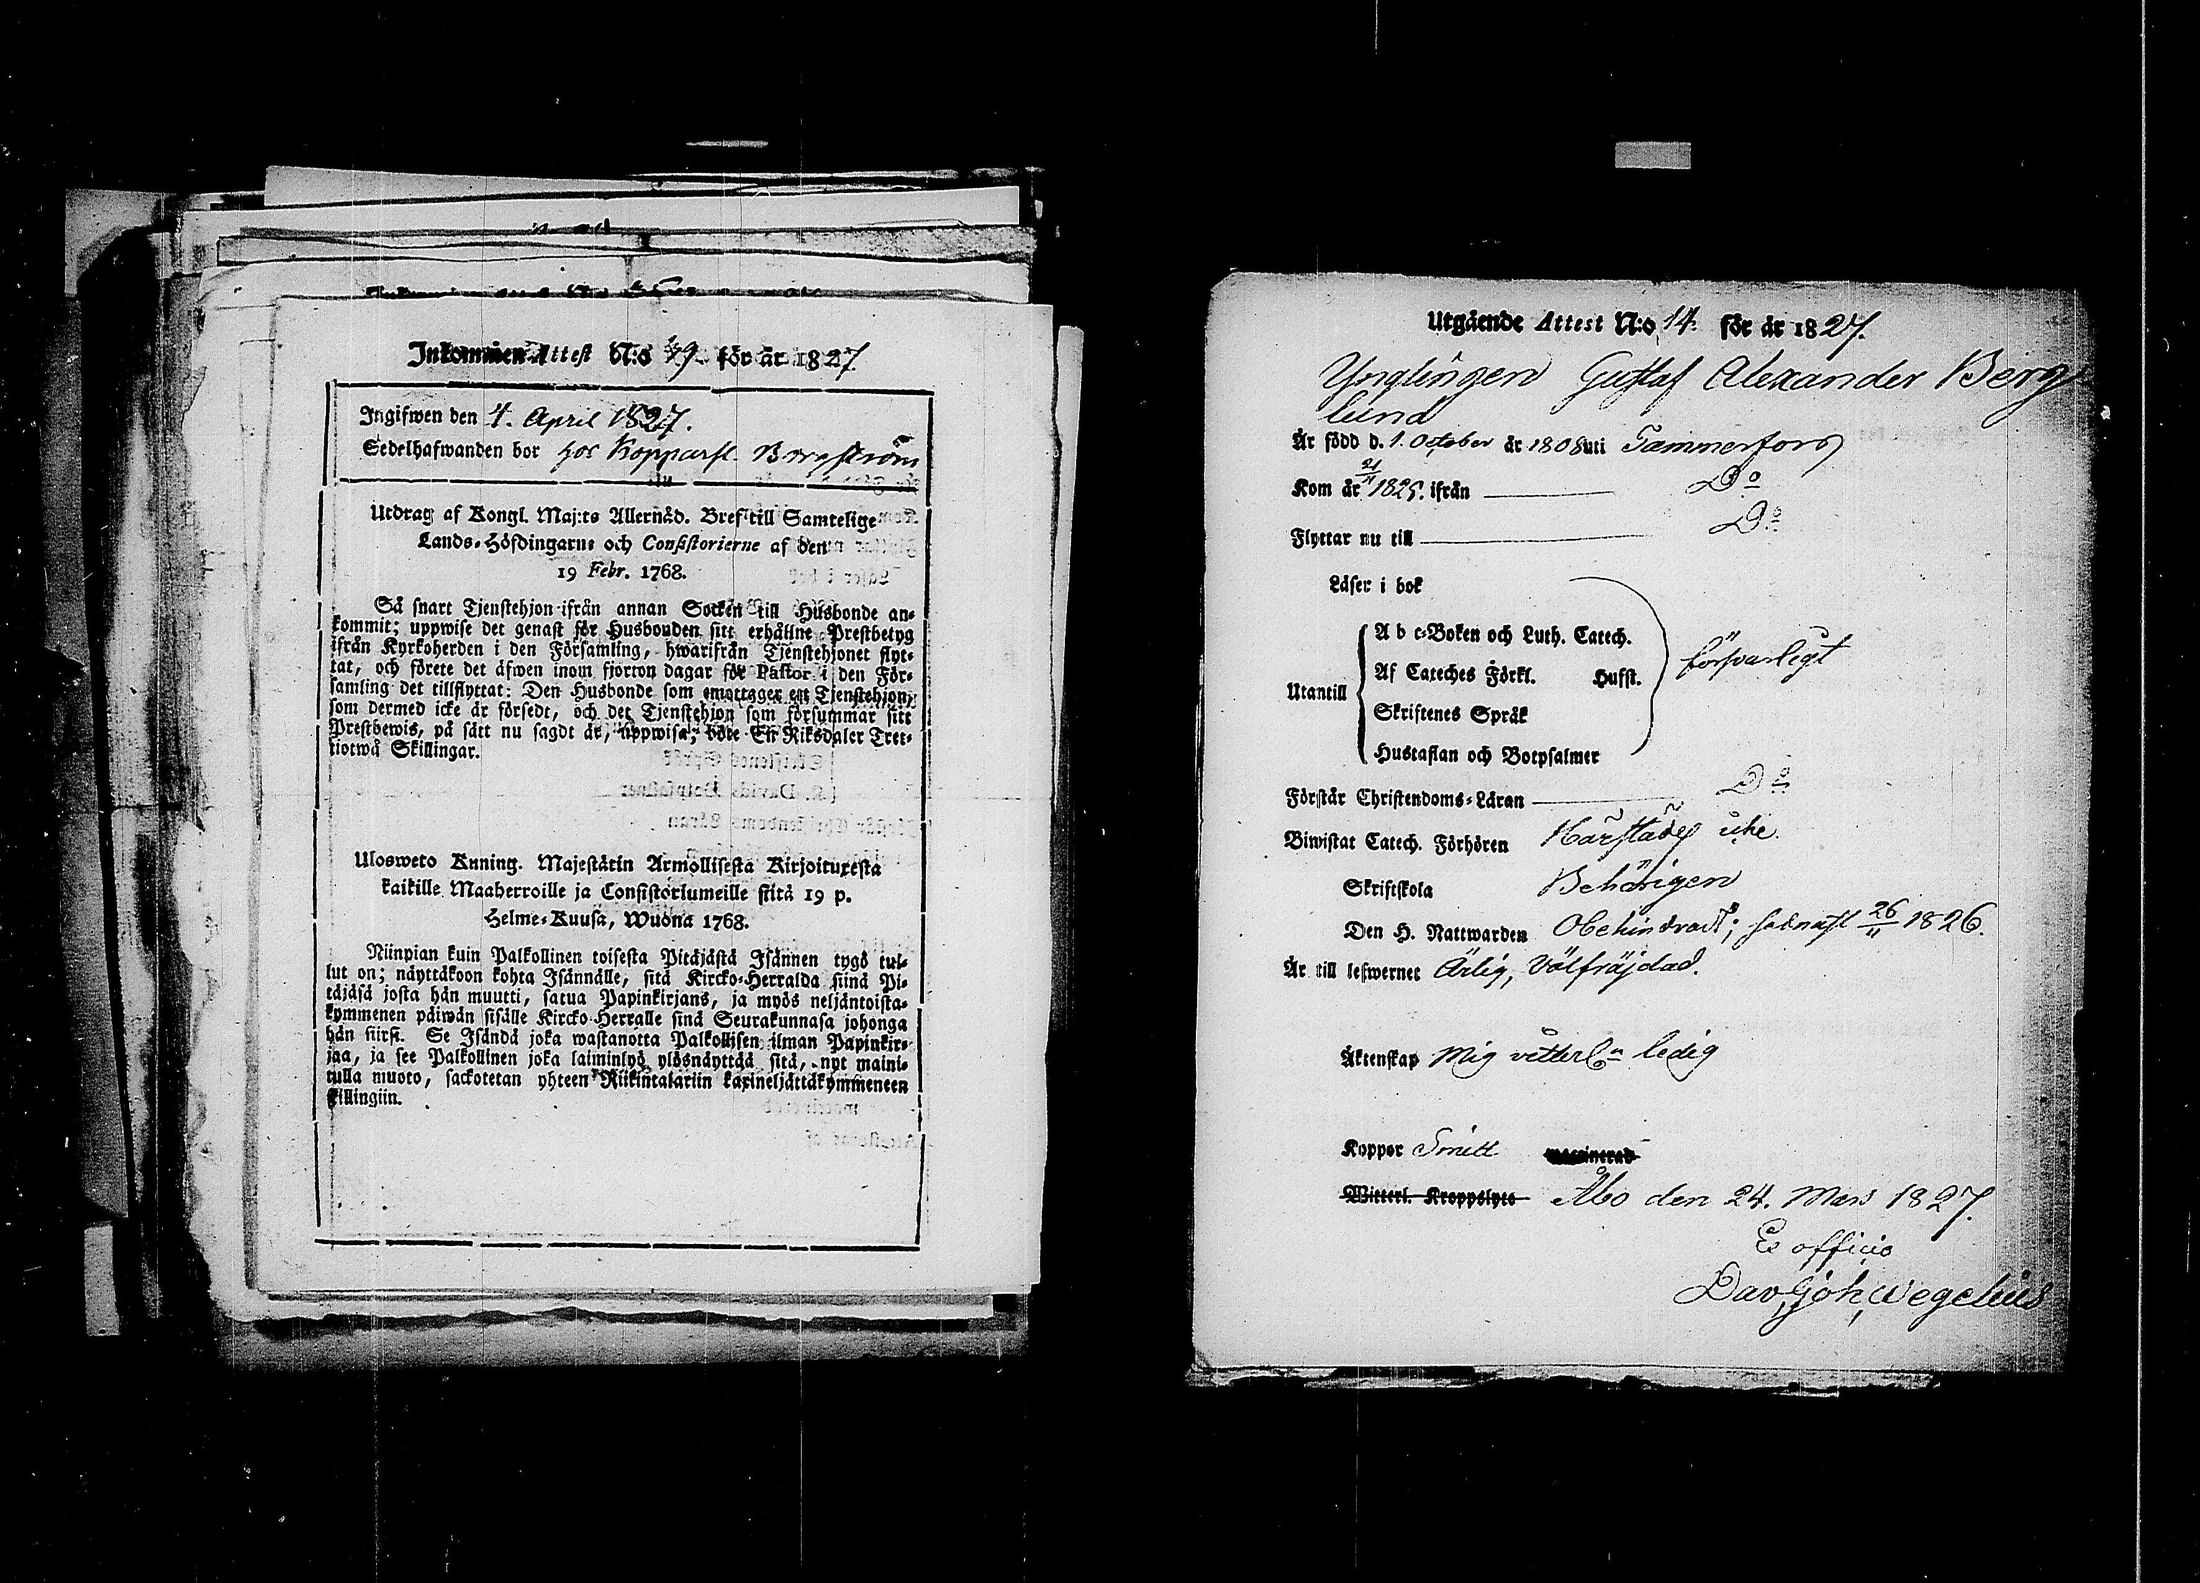 Inkommen Attest N:o 49. för år 1827.
Ingifwen den 4. April 1827.
Sedelhafwanden bor hos Kopparsl. Bergström
Utdrag af Kongl. Maj:ts Allernåd. Bref till Samtelige
Lands-Höfdingarne och Consistorierne af den
19 Febr. 1768.
Så snart Tjenstehjon ifrån annan Socken till Husbonde an-
kommit; uppwise det genast för Husbonden sitt erhållne Prestbetyg
ifrån Kyrkoherden i den Församling, hwarifrån Tjenstehjonet flyt-
tat, och förete det äfwen inom fjorton dagar för Pastor i den För-
samling det tillflyttat: Den Husbonde som emottager ett Tjenstehjon,
som dermed icke är försedt, och det Tjenstehjon som försummar sitt
Prestbewis, på sätt nu sagdt är, uppwisa, böte En Riksdaler Tret-
tiotwå Skillingar.
Ulosweto Kuning. Majestätin Armollisesta Kirjoituxesta
kaikille Maaherroille ja Consistoriumeille siitä 19 p.
Helme-Kuusa, Wuonna 1768.
Niinpian kuin Palkollinen toisesta Pitäjästä Isännen tygö tul-
lut on; näyttäkoon kohta Isännälle, sitä Kircko-Herralda siinä Pi-
täjäsä josta hän muutti, saatua Papinkirjans, ja myös neljäntoista-
kymmenen päiwän sisälle Kircko-Herralle siinä Seurakunnasa johonga
hän siirsi. Se Isändä joka wastanotta Palkollisen ilman Papinkir-
jaa, ja see Palkollinen joka laiminlyö ylösnäyttää sitä, nyt maini-
tulla muoto, sackotetan yhteen Riikintalariin kaxineljättäkymmeneen
killingiin.
Utgående Attest N:o 14. för år 1827.
Ynglingen Gustaf Alexander Berg
lund
Är född d. 1. October år 1808 uti Tammerfors
Kom år 21/11 1825. ifrån D:o
Flyttar nu till D:o
Läser i bok
Utantill
A b c-Boken och Luth. Catech.
Af Cateches Förkl. Husft.
Skriftenes Språk
Hustaflan och Botpsalmer
försvarligt
Förstår Christendoms-Läran D:o
Biwistat Catech. Förhören
Skriftskola Behörigen
Den H. Nattwarden Obehindradt; sednast 26/11 1826.
Är till lefwernet Ärlig, Välfräjdad.
Äktenskap Mig vetterl:n ledig
Koppor Smitt
Witterl. Kroppslyte Åbo den 24. Mars 1827.
Ex officio
Dav. Joh. Wegelius